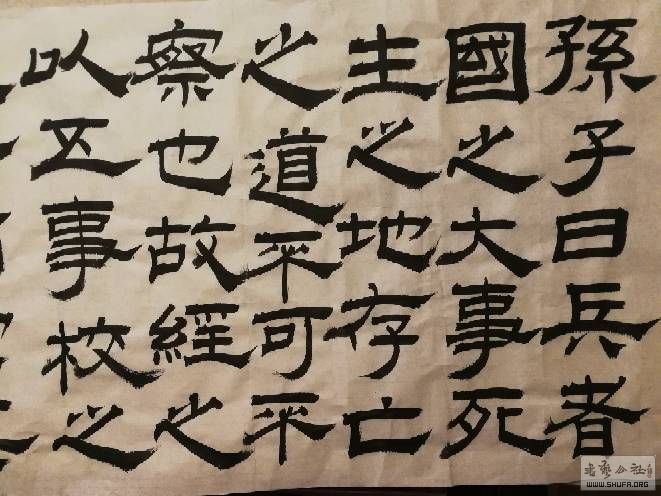 孫子曰兵者
國之大事死
生之地存亡
之道不可不
察也故經之
以五事校之
书艺公社
WWW.SHUFA.ORG